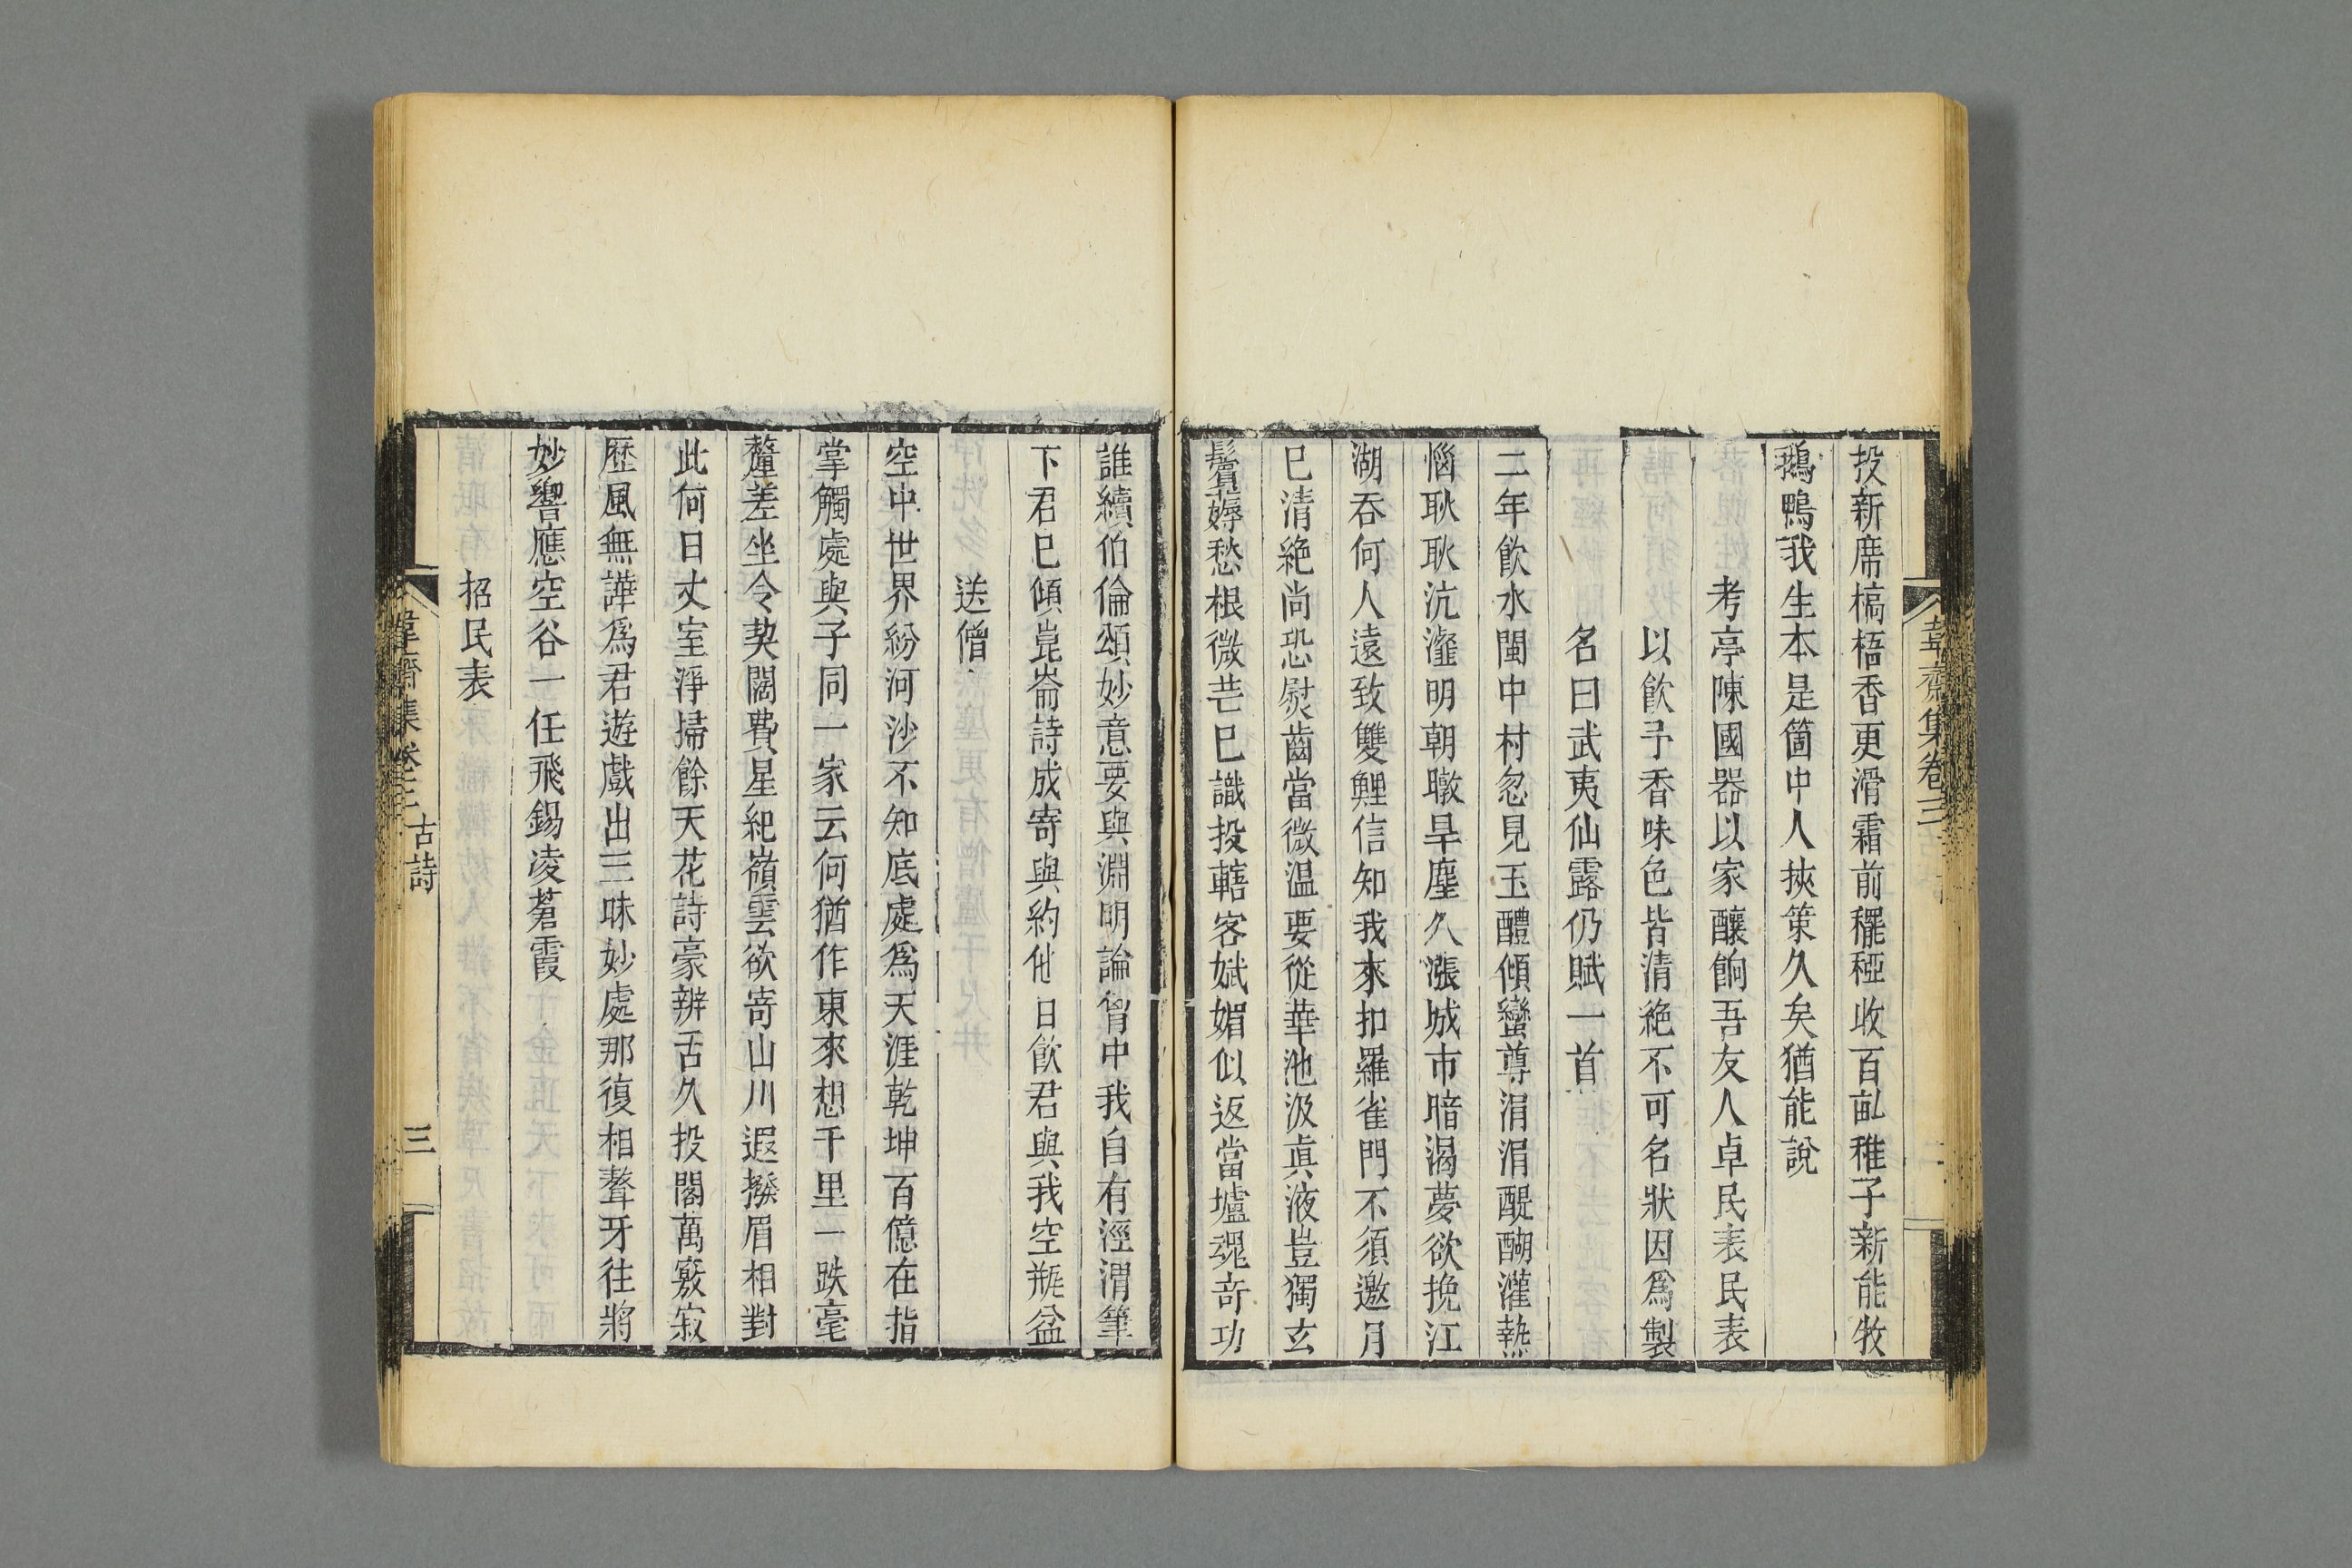 韋齋集卷三
投新席槁梧香更滑霜前䆉稏收百𠭇稚子新能牧
鵝鴨我生本是箇中人挾策久矣猶能說
考亭陳國器以家釀餉吾友人卓民表民表
以飮予香味色皆清絶不可名狀因爲製
名曰武夷仙露仍賦一首
二年飮水閩中村忽見玉醴傾蠻尊涓涓醍醐灌熱
惱耿耿沆瀣明朝暾旱塵久漲城市暗渴夢欲挽江
湖吞何人遠致雙鯉信知我來扣羅雀門不須邀月
巳清絶尚恐熨齒當微温要從華池汲眞液豈獨玄
鬢薅愁根微芒巳識投轄客娬媚似返當壚魂奇功
誰續伯倫頌妙意要與淵明論胷中我自有涇渭筆
下君巳傾崑崙詩成寄與約他日飮君與我空瓶盆
送僧
空中世界紛河沙不知底處爲天涯乾坤百億在指
掌觸處與子同一家云何猶作東來想千里一跌毫
釐差坐令契闊費星紀嶺雲欲寄山川遐撥眉相對
此何日丈室淨掃餘天花詩豪辨舌久投閣萬竅寂
歷風無譁爲君遊戲出三昧妙處那復相謷牙往將
妙響應空谷一任飛錫凌蒼霞
招民表
韋齋集卷三 古詩 三